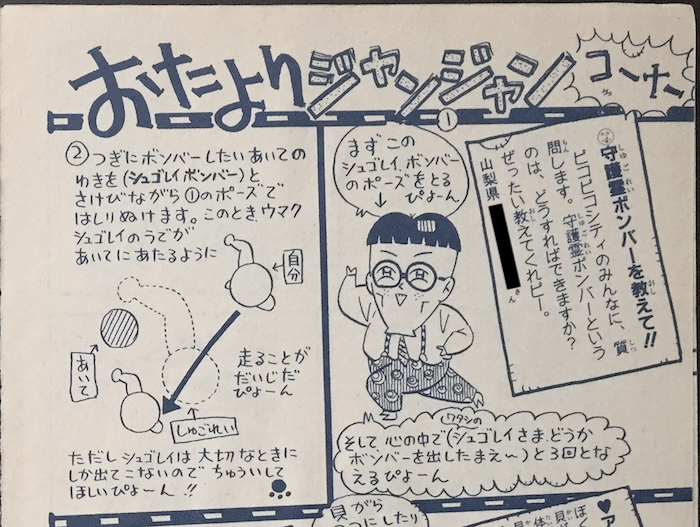 おたよりジャンジャンコーナー
①
守護霊ボンバーを教えて!!
しゅごれい
おし
ピコピコシティのみんなに、質
しつ
問します。守護霊ボンバーという
もん
しゅごれい
のは、どうすればできますか?
ぜったい教えてくれピー。
おし
山梨県
さん
まず この
シュゴレイ、ボンバー
のポーズをとる
ぴょーん
そして 心の中で(シュゴレイさま、どうか
ワタシの
ボンバーを出したまえ〜)と3回とな
えるぴょーん
②つぎにボンバーしたいあいての
ゆきを(シュゴレイボンバー)と
さけびながら①のポーズで
はしりぬけます。このとき、ウマク
シュゴレイのうでが
あいてにあたるように
自分
あいて
しゅごれい
走ることが
だいじだ
ぴょーん
ただし シュゴレイは 大切なときに
しか出てこないので ちゅういして
ほしいぴょーん!!
貝がら
つにしたり